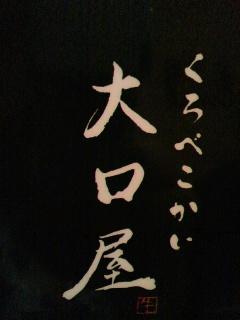 くろべこかい
大口屋
牛